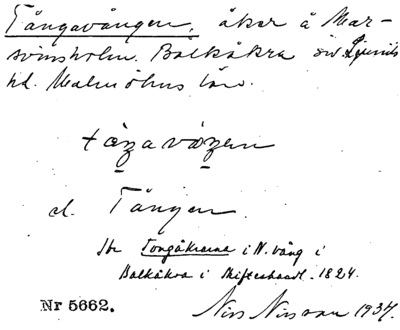 Tångavången, åker å Mar-
svinsholm. Balkåkra sn. Ljunits
hd. Malmöhus län.
tåŋavåŋen
el. Tången
Jbr Tongåkrarna i N. vång i
Balkåkra i skifteshandl. 1824.
Nr 5662.
Nils Nilsson 1934.